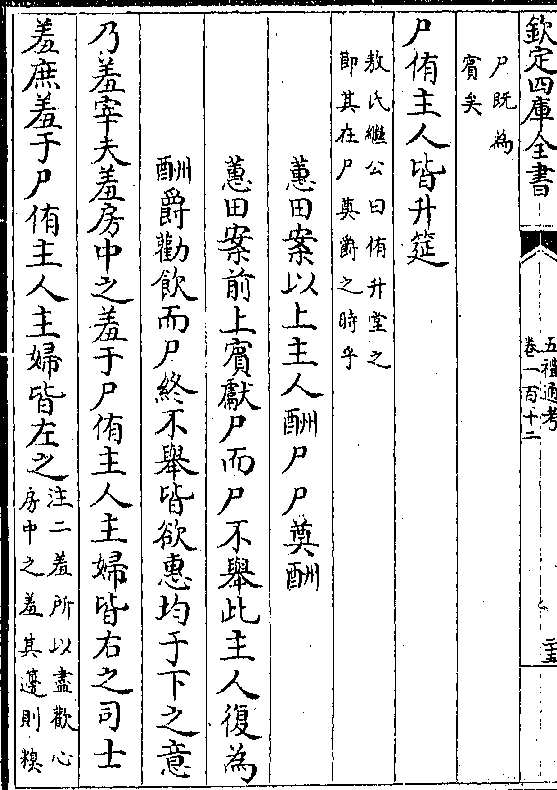 欽定四庫全書
五禮通考
卷一百十二
尸既為
賓矣
尸侑主人皆升筵
敖氏繼公曰侑升堂之
節其在尸奠爵之時乎
蕙田案以上主人酬尸尸奠酬
蕙田案前上賓獻尸而尸不舉此主人復為
酬爵勸飲而尸終不舉皆欲惠均于下之意
乃羞宰夫羞房中之羞于尸侑主人主婦皆右之司士
羞庶羞于尸侑主人主婦皆左之
注二羞所以盡歡心
房中之羞其籩則糗